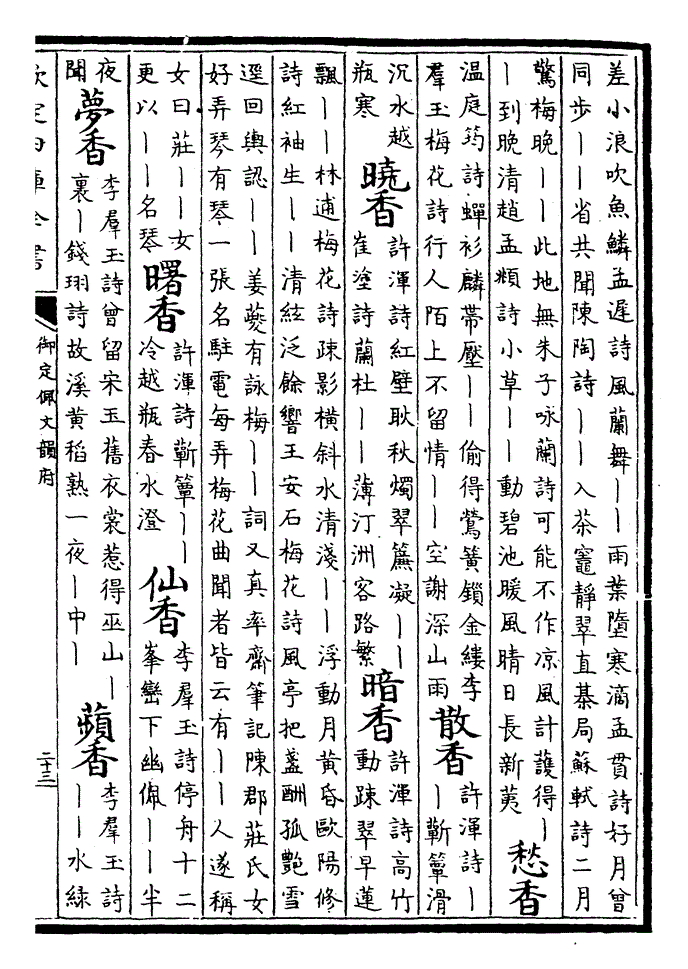 差小浪吹魚鱗孟遲詩風蘭舞一一雨葉墮寒滴孟貫詩好月曾
同步一一省共聞陳陶詩一一入茶竈靜翠直棊局蘇軾詩二月
驚梅晚一一此地無朱子咏蘭詩可能不作凉風計護得一
一到晚清趙孟頫詩小草一一動碧池暖風晴日長新荑
愁香
溫庭筠詩蟬衫麟帶壓一一偷得鶯簧鎖金縷李
羣玉梅花詩行人陌上不留情一一空謝深山雨
散香
許渾詩一
一蘄簟滑
沉水越
瓶寒
曉香
許渾詩紅壁耿秋燭翠簾凝一一
崔塗詩蘭杜一一薄汀洲客路繁
暗香
許渾詩高竹
動踈翠早蓮
飄一一林逋梅花詩疎影横斜水清淺一一浮動月黄昏歐陽修
詩紅袖生一一清絃泛餘響王安石梅花詩風亭把盞酬孤艶雪
逕回輿認一一姜夔有詠梅一一詞又真率齋筆記陳郡莊氏女
好弄琴有琴一張名駐電每弄梅花曲聞者皆云有一一人遂稱
女曰莊一一女
更以一一名琴
曙香
許渾詩蘄簟一一
冷越瓶春水澄
仙香
李羣玉詩停舟十二
峯巒下幽佩一一半
夜
聞
夢香
李羣玉詩曾留宋玉舊衣裳惹得巫山一
裏一錢珝詩故溪黄稻熟一夜一中一
蘋香
李羣玉詩
一一水緑
欽定四庫全書
御定佩文韻府
二十三